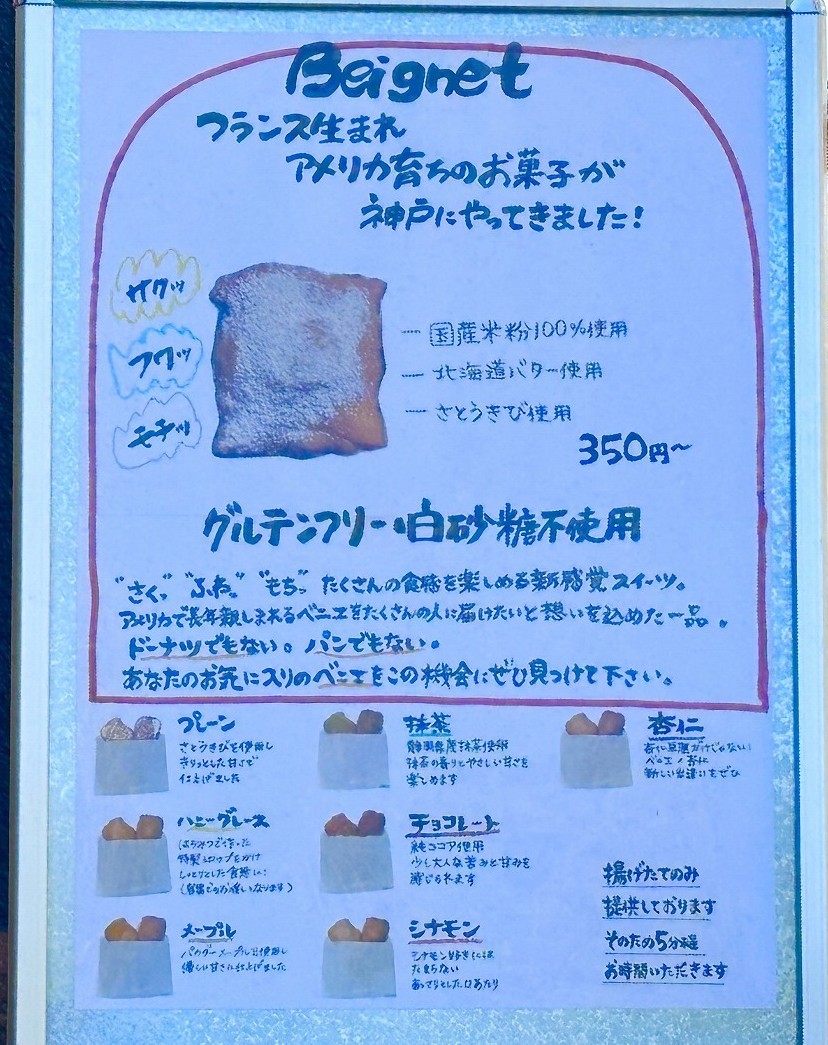 Beignet
フランス生まれ
アメリカ育ちのお菓子が
神戸にやってきました!
サクッ
フワッ
モチッ
国産米粉100%使用
北海道バター使用
さとうきび使用
350円〜
グルテンフリー・白砂糖不使用
"さくっ" "ふわっ" "もちっ" たくさんの食感を楽しめる新感覚スイーツ。
アメリカで長年親しまれるベニエをたくさんの人に届けたいと想いを込めた一品。
ドーナツでもない。パンでもない。
あなたのお気に入りのベニエをこの機会にぜひ見つけて下さい。
プレーン
さとうきびを使用し
きりっとした甘さで
仕上げました
抹茶
静岡県産抹茶使用
抹茶の香りとやさしい甘さを
楽しめます
杏仁
杏仁豆腐だけじゃない
ベニエ
杏仁
新しい出逢いをぜひ
ハニーグレーズ
はちみつで作った
特製シロップをかけ
しっとりとした食感に!
チョコレート
純ココア使用
少し大人な苦みと甘みを
感じられます
メープル
パウダーメープルを使用し
優しい甘さに仕上げました
シナモン
シナモン好きには
たまらない
あっさりとした口あたり
揚げたてのみ
提供しております
そのため5分程
お時間いただきます